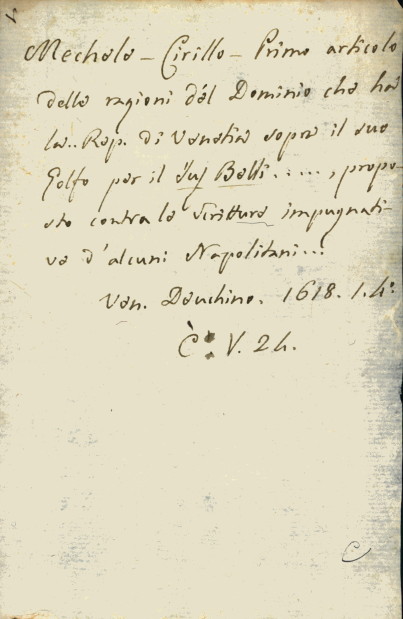 Mechele - Cirillo - Primo articolo
delle ragioni del Dominio che ha
la.. Rep. di Venetia sopra il suo
Golfo per il Jus Belli ....., propo-
sto contra le scritture impugnati-
ve d'alcuni Napolitani...
Ven. Deuchino. 1618. 1. 4º
C V. 24.
C